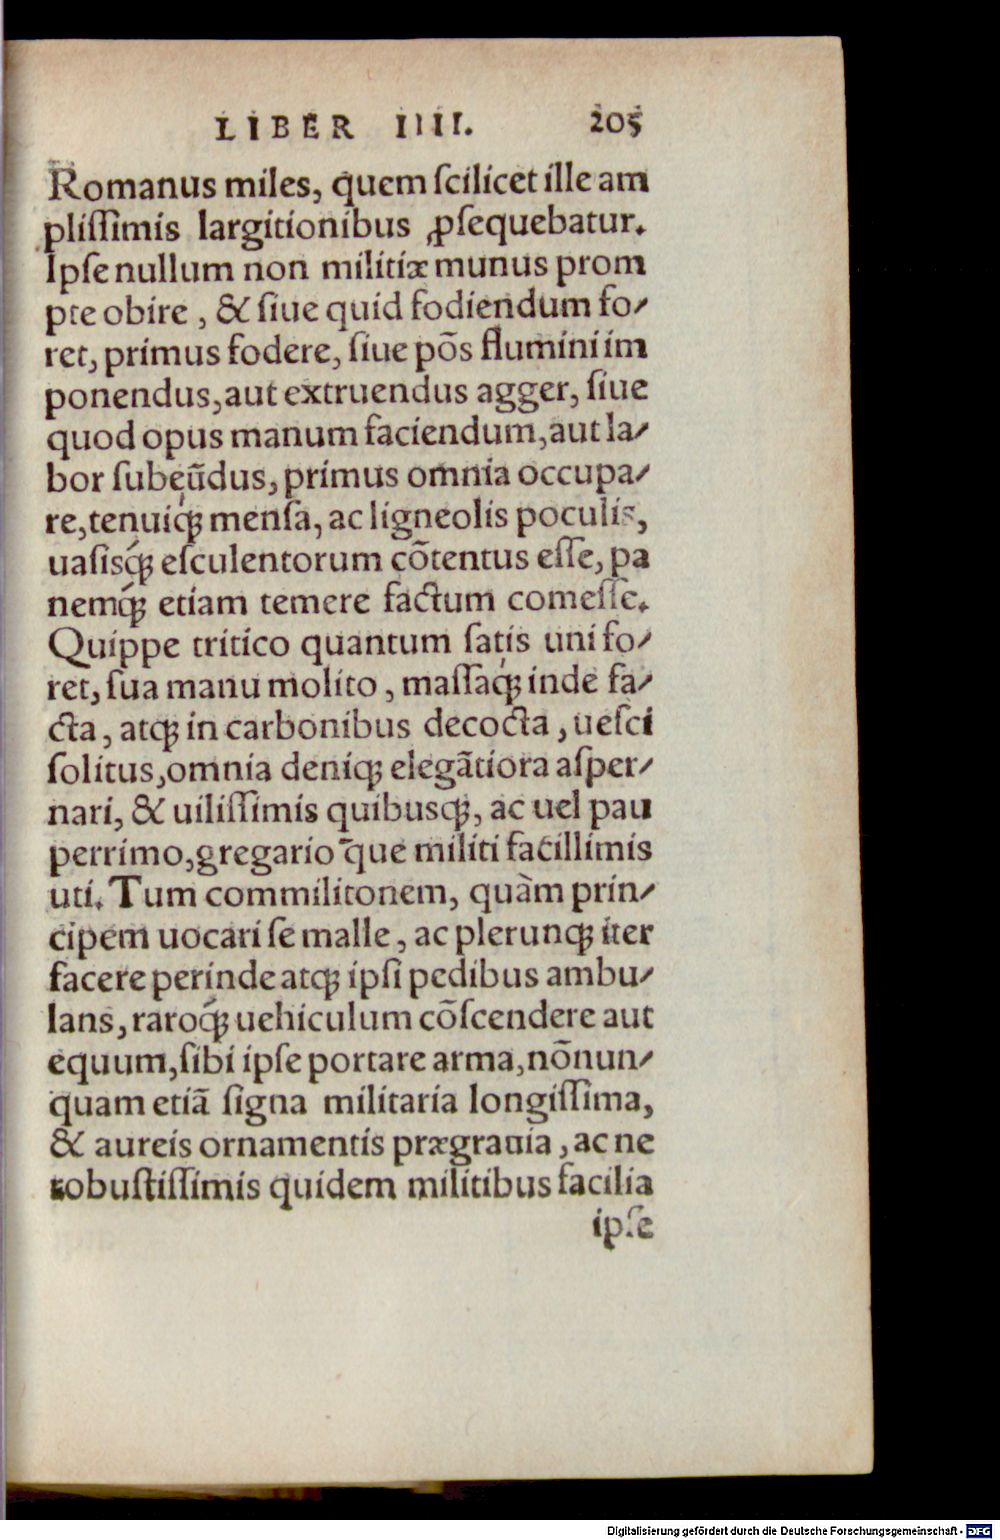 LIBER IIII. 205
Romanus miles, quem ſcilicet ille am
pliſſimis largitionibus ꝓſequebatur.
Ipſe nullum non militiæ munus prom
pte obire, & ſiue quid fodiendum fo⸗
ret, primus fodere, ſiue põs flumini im
ponendus, aut extruendus agger, ſiue
quod opus manum faciendum, aut la⸗
bor ſubeũdus, primus omnia occupa⸗
re, tenuiq́ꝫ menſa, ac ligneolis poculis,
uasisq́ꝫ eſculentorum cõtentus eſſe, pa
nemq́ꝫ etiam temere factum comeſſe.
Quippe tritico quantum ſatis uni fo⸗
ret, ſua manu molito, maſſaq́ꝫ inde fa⸗
cta, atqꝫ in carbonibus decocta, ueſci
ſolitus, omnia deniqꝫ elegãtiora aſper⸗
nari, & uiliſſimis quibusqꝫ, ac uel pau
perrimo, gregario q̃ue militi facillimis
uti. Tum commilitonem, quàm prin⸗
cipem uocari ſe malle, ac plerunqꝫ iter
facere perinde atqꝫ ipſi pedibus ambu⸗
lans, raroq́ꝫ uehiculum cõſcendere aut
equum, ſibi ipſe portare arma, nõnun⸗
quam etiã ſigna militaria longiſſima,
& aureis ornamentis prægrauia, ac ne
robuſtiſſimis quidem militibus facilia
ipſe
Digitalisierung gefördert durch die Deutsche Forschungsgemeinschaft - DFG